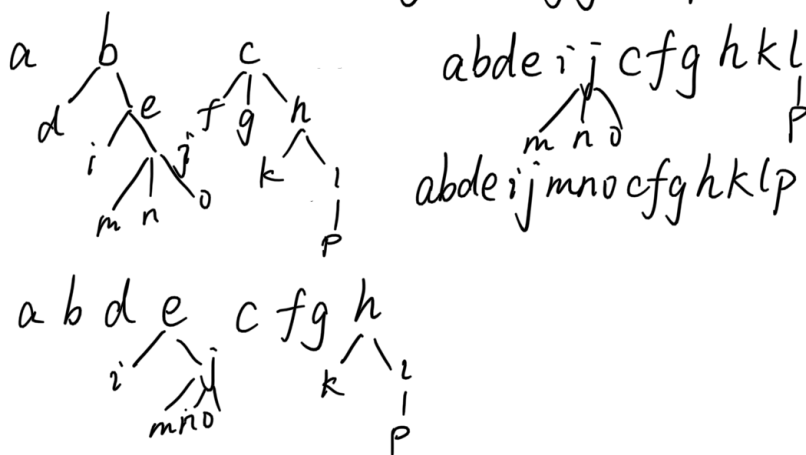 a b c
d e f g h
i j k l
m n o p
abde i j cfg h k l
m n o p
abdeijmnocfghklp
a b d e c f g h
i j k l
m n o p